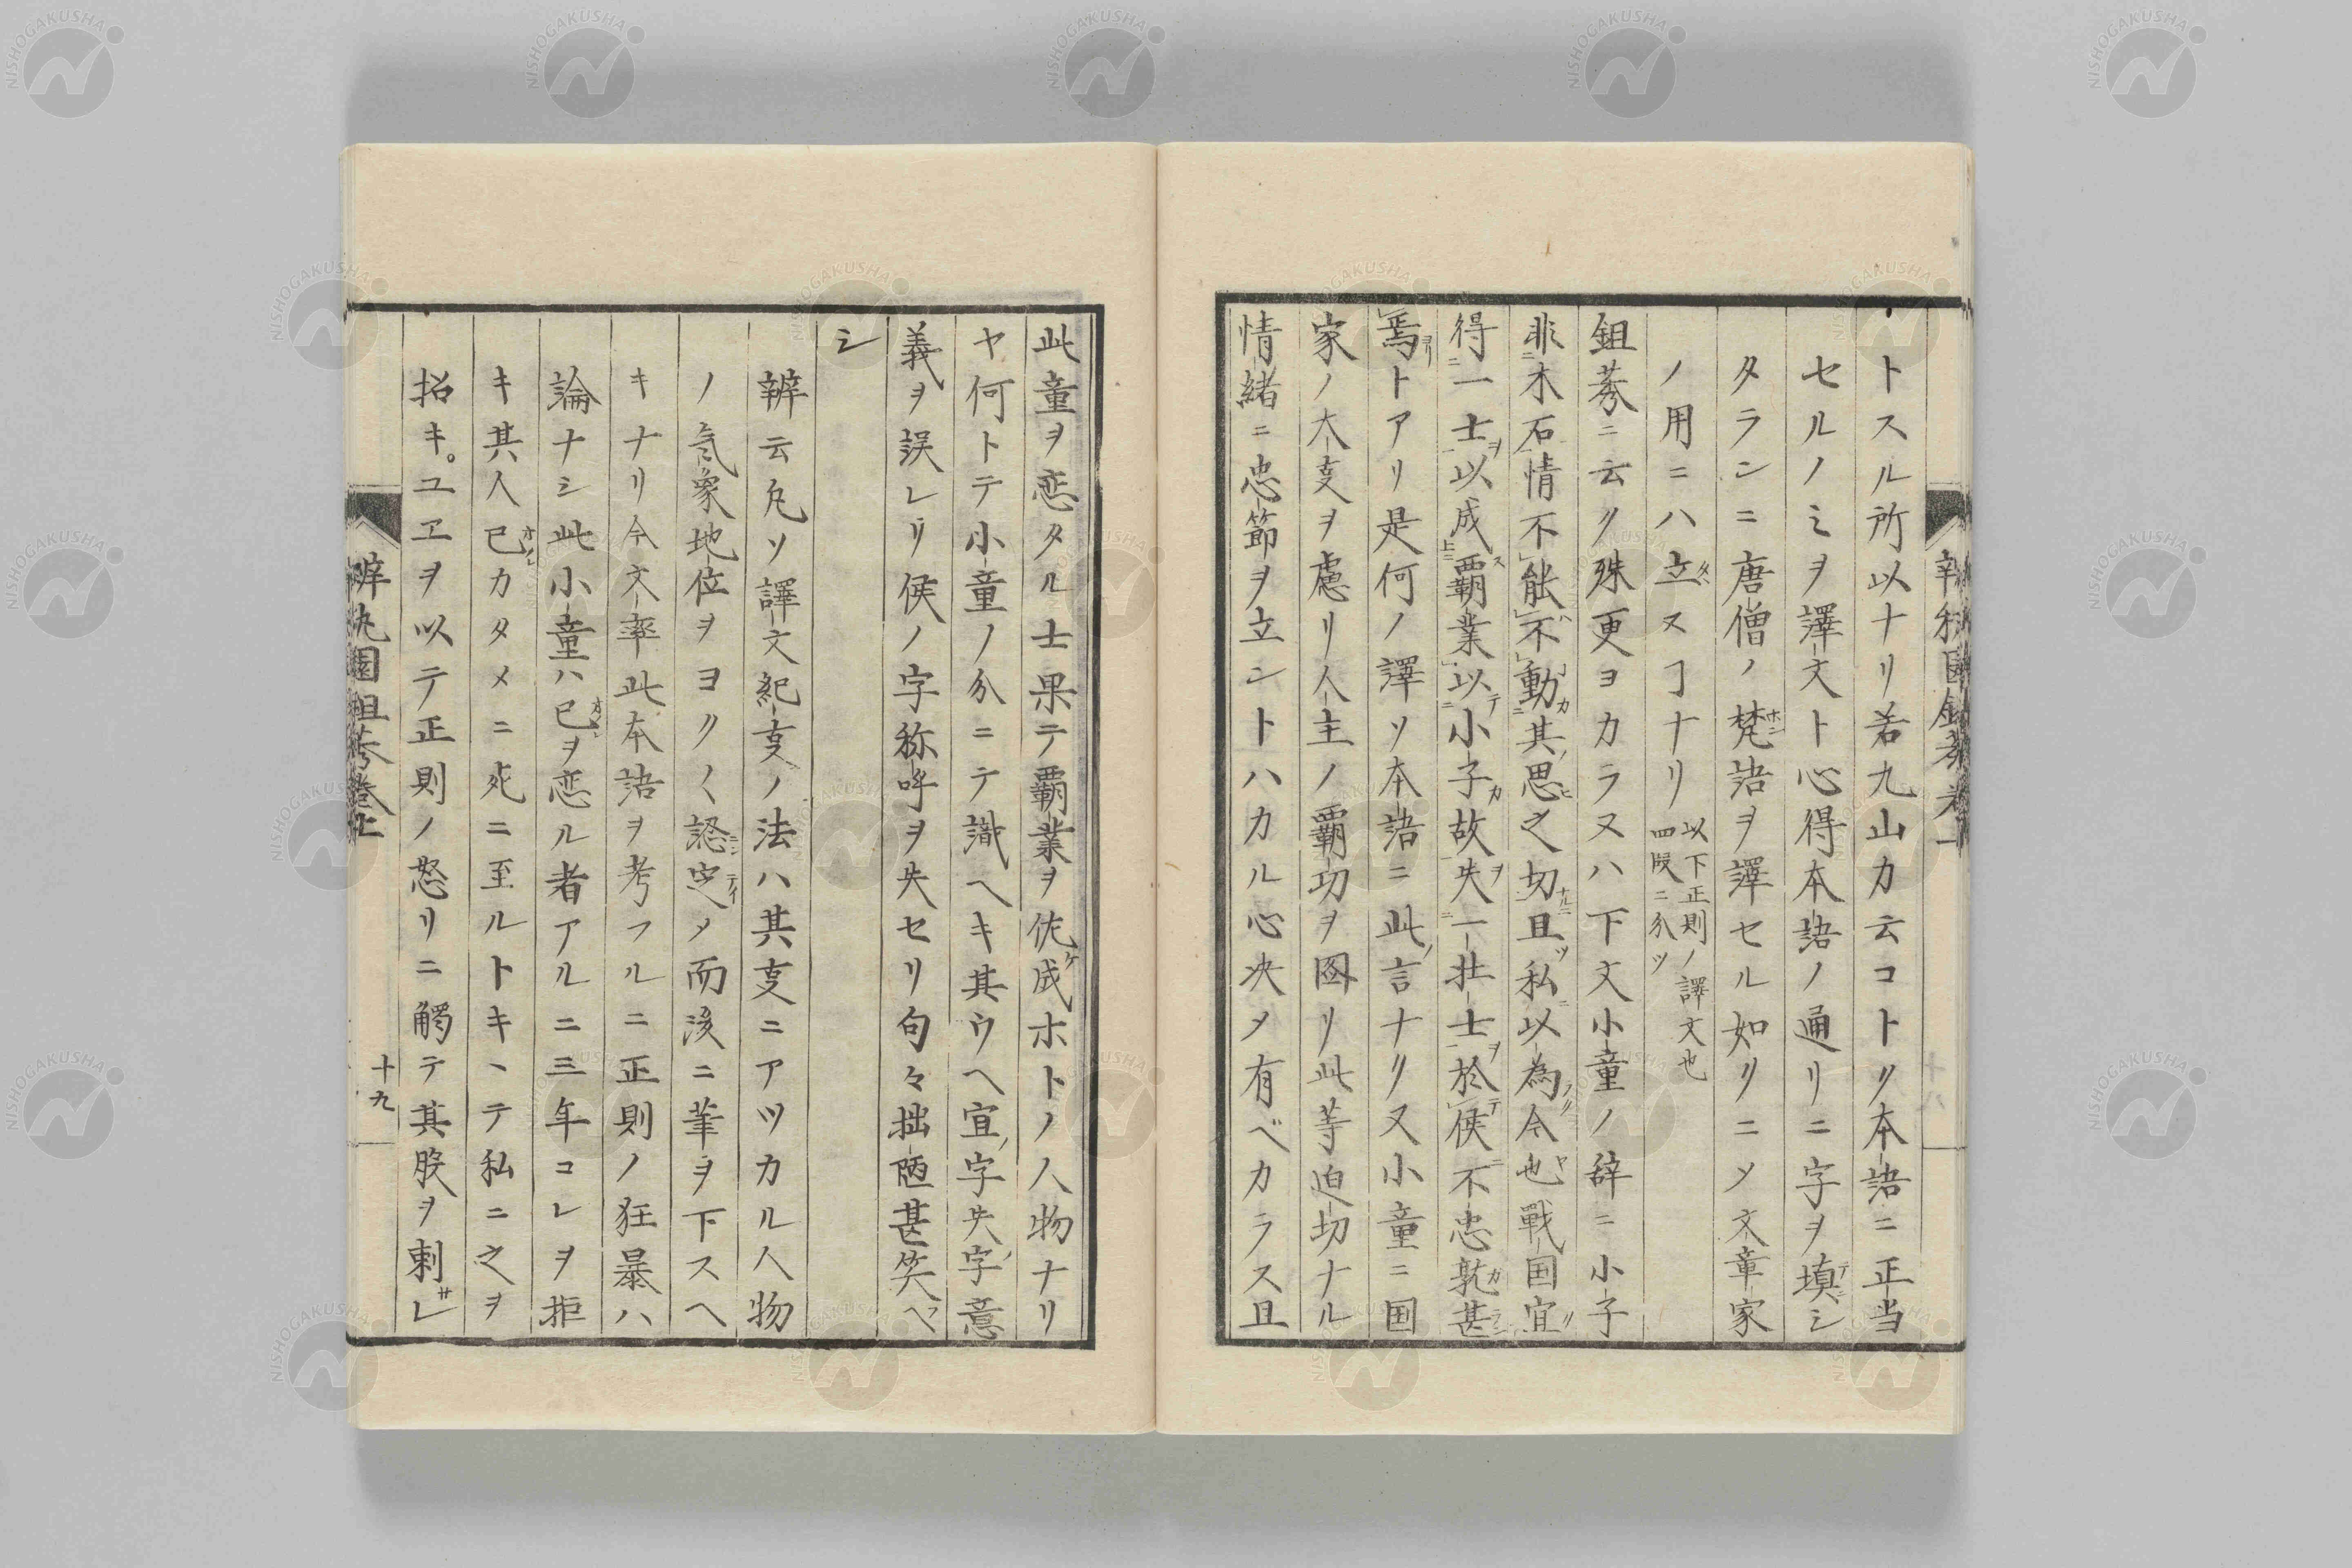 トスル所以ナリ若九山カ云コトク本語ニ正当
セルノミヲ譯文ト心得本語ノ通リニ字ヲ填シ
タランニ唐僧ノ梵語ヲ譯セル如クニシテ文章家
ノ用ニハ立ヌヿナリ以下正則ノ譯文也四段ニ分ツ
鉏莠ニ云ク殊更ヨカラヌハ下文小童ノ辞ニ小子
非木石情不能不動其思之切且私以為令也戰国宜
得一士以成覇業以小子故失一壮士於侯不忠孰甚
焉トアリ是何ノ譯ソ本語ニ此言ナク又小童ニ国
家ノ大叓ヲ慮リ人主ノ覇功ヲ図リ此等迫切ナル
情緒ニ忠節ヲ立ントハカル心决シテ有ベカラス且
此童ヲ恋タル士果テ覇業ヲ佐成ホトノ人物ナリ
ヤ何トテ小童ノ分ニテ識ヘキ其ウヘ宜ノ字失ノ字意
義ヲ誤レリ侯ノ字称呼ヲ失セリ句々拙陋甚笑フヘ
シ
辨云凡ソ譯文紀叓ノ法ハ其叓ニアツカル人物
ノ気象地位ヲヨクく認定シテ而後ニ筆ヲ下スヘ
キナリ今文率此本語ヲ考フルニ正則ノ狂暴ハ
論ナシ此小童ハ己ヲ恋ル者アルニ三年コレヲ拒
キ其人己カタメニ死ニ至ルトキヽテ私ニ之ヲ
招キ。ユヱヲ以テ正則ノ怒リニ觸テ其股ヲ刺レ
辨艸園鉏莠巻上
十九